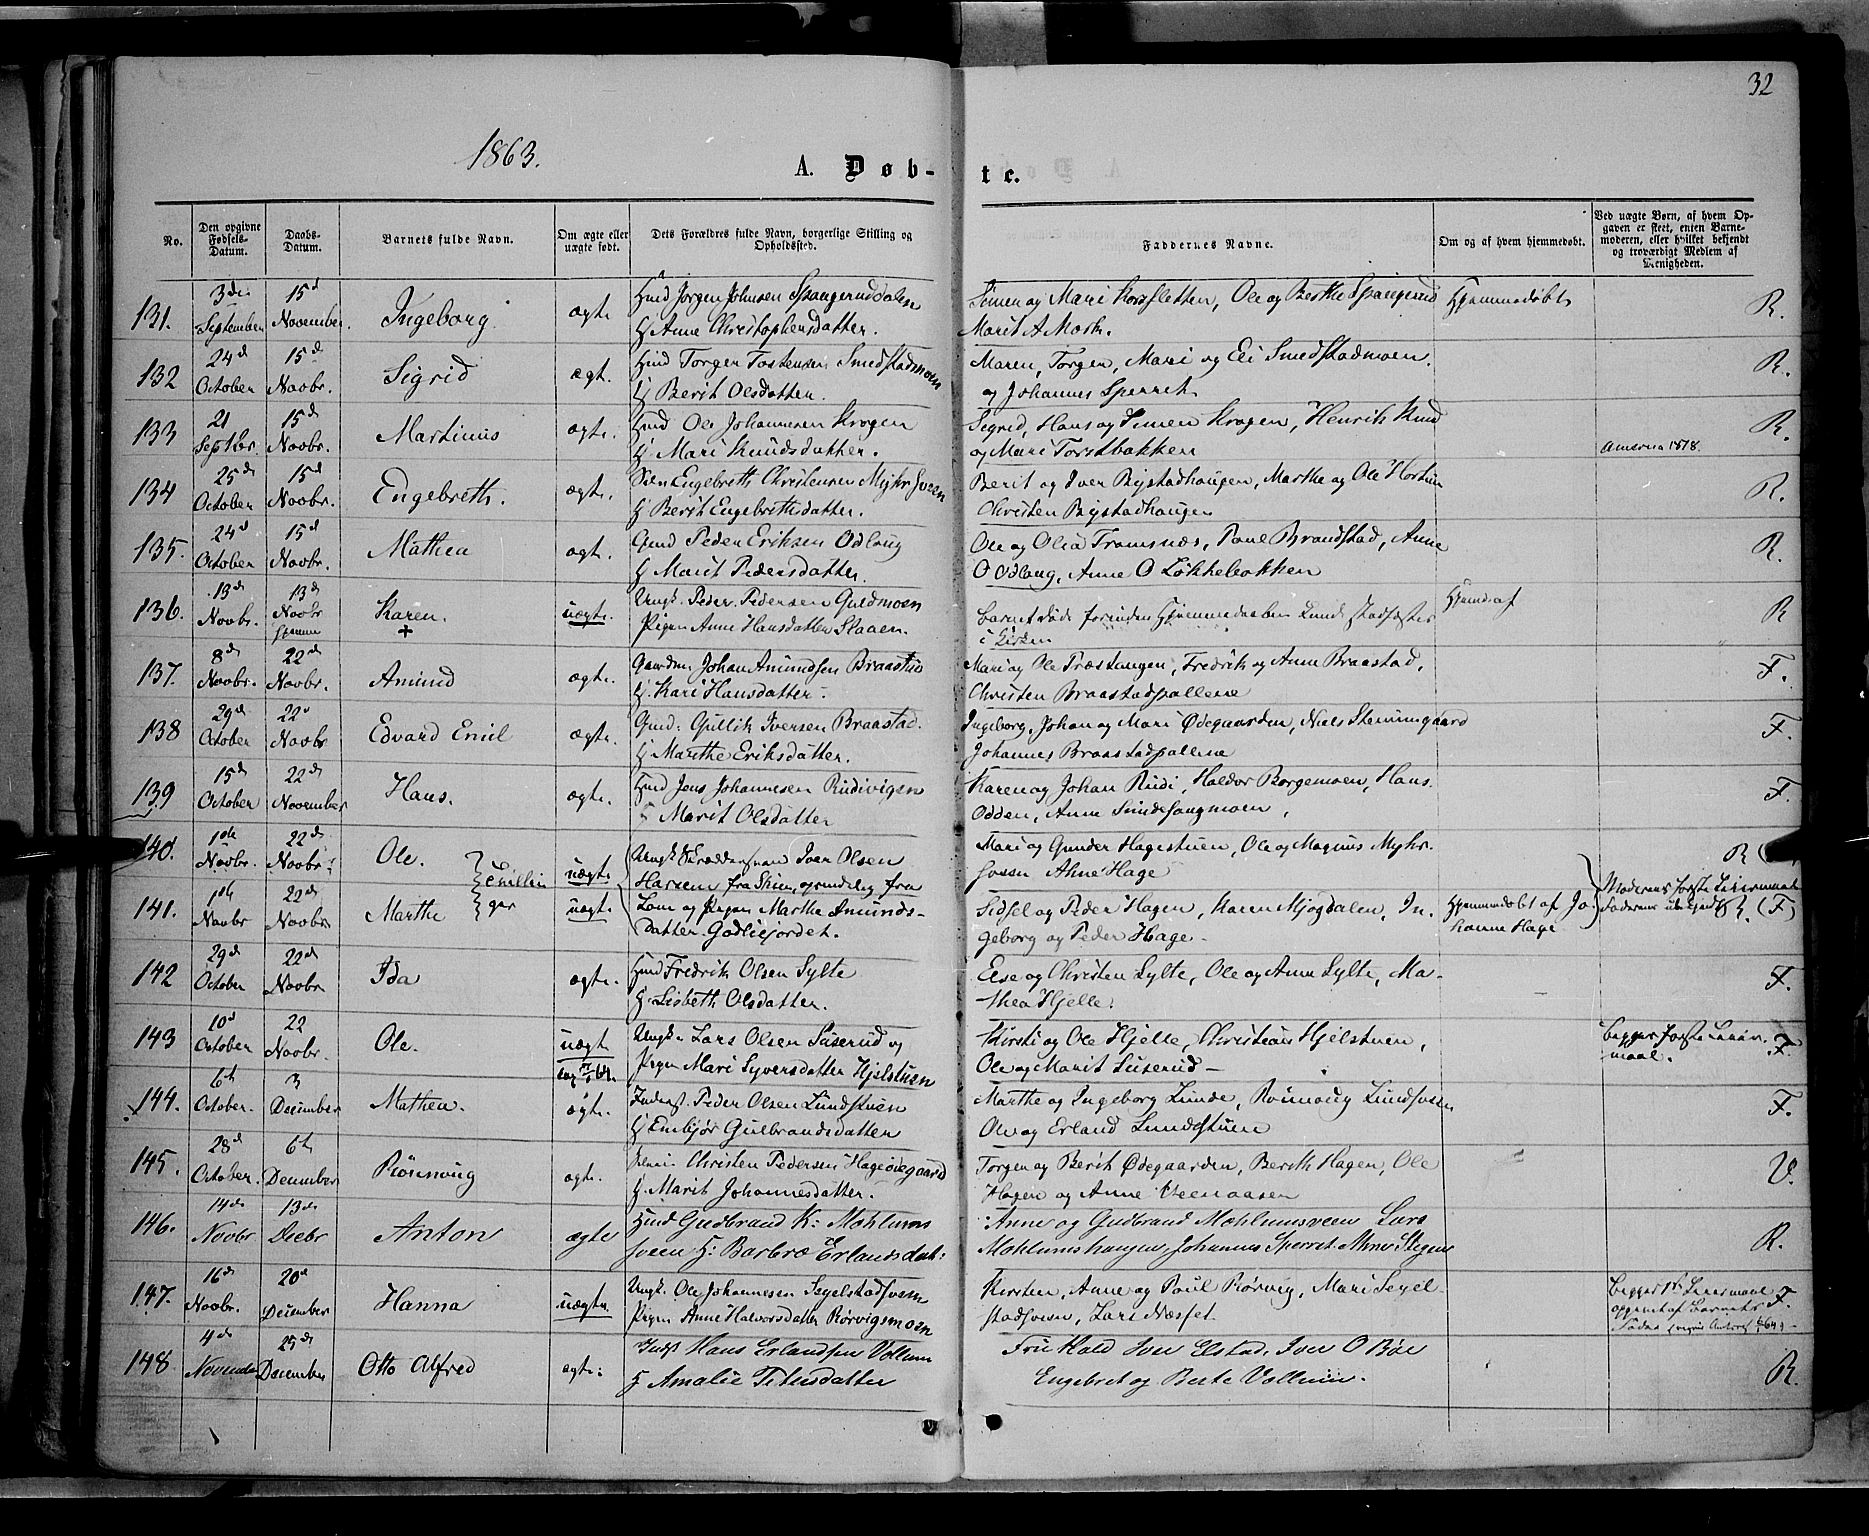 32
1863.
A. Døb-
te.
No.
Den opgivne Fødsels-Datum.
Daabs-Datum.
Barnets fulde Navn.
Om ægte eller uægte født.
Dets Forældres fulde Navn, borgerlige Stilling og Opholdssted.
Faddernes Navne.
Om og af hvem hjemmedøbt.
Ved uægte Børn, af hvem Opgaven er skeet, enten Barnemoderen, eller hvilket bekjendt og troværdigt Medlem af Menigheden.
131. 3die September 15d November. Ingeborg. ægte Hmd Jørgen Johnsen Spangeruddalen
H Anne Christophersdatter.
Simen og Mari Korsfletten, Ole og Berthe Spangerud Hjemmedøbt R.
Marit A Moshr.
132 24d October 15d Novbr. Sigrid ægt. Hmd Torger Tostensen Smedstadmoen
H Berit Olsdatter.
Maren, Torger, Mari og Eli Smedstadmoen R.
og Johannes Sperret
133 21 Septbr. 15d Novbr. Martinus ægte. Hmd Ole Johannesen Krogen
H Mari Knudsdatter.
Sigrid, Hans og Simen Krogen, Henrik Knud R.
og Mari Torstbakken
America 1878.
134 25d October 15d Novbr. Engebreth. ægte. Engebreth Christensen Myhrsveen
H Berit Engebrethsdatter.
Berit og Iver Bystadhaugen, Marthe og Ole R.
Christen Bystadhaugen
135. 24d October 15d Novbr. Mathea ægt. Gmd Peder Eriksen Odlaug
H Marit Pedersdatter.
Ole og Olia Tramsnæs, Paul Brandstad, Anne R.
O Odlaug, Anne O Løkkebakken
136. 13d Novbr. 13d Novbr hjemme Karen. + uægte. Ungk. Peder Pedersen Guldmoen
Pigen Anne Hansdatter Staaen.
Barnet døde forinden Hjemmedaaben kunde stadfæstes Hjemd. af R
i Kirken
137. 8d Novbr. 22d Novbr. Amund ægte. Gaardm. Johan Amundsen Braastad
H. Kari Hansdatter.
Mari og Ole Præstangen, Fredrik og Anne Braastad, F.
Christen Braastadpallene
138 29d October 22d Novbr Edvard Emil ægte. Gmd: Gullik Iversen Braastad.
H Marthe Eriksdatter.
Ingeborg, Johan og Mari Ødegaarden, Niels Stenumgaard F.
Johannes Braastadpallene
139 15d October 22d November Hans. ægte. Hmd Jens Johannesen Rudivigen
H Marit Olsdatter
Karen og Johan Rudi, Haldor Borgemoen, Hans F.
Odden, Anne Sundesangmoen,
140. 1ste Novbr. 22d Novbr. Ole. uægte Ungk Skræddersvend Iver Olsen
Tvillinger
Mari og Gunder Hagestuen, Ole og Magnus Myhr- R
sveen Anne Hage
141. 1ste Novbr 22d Novbr. Marthe uægt. Hansen fra Skien, oprindelig fra
Lom og Pigen Marthe Amunds-
datter Godliejordet.
Sidsel og Peder Hagen, Karen Mjøgdalen, In-
geborg og Peder Hage.
Hjemmedøbt af Jo-
hanne Hage
Moderens første Leiermaal
Faderens ubekjendt R. (F)
142 29d October 22d Novbr Ida ægt. Hmd Fredrik Olsen Sylte
H. Lisbeth Olsdatter.
Else og Christen Sylte, Ole og Anne Sylte, Ma- F.
thea Hjelle.
143 10d October 22 Novbr. Ole. uægt Ungk. Lars Olsen Suserud og
Pigen Mari Syversdatter Hjelstuen
Kirsti og Ole Hjelle, Christian Hjelstuen,
Ole og Marit Suserud
Begges første Leier-
maal. F.
144. 6th October. 3 December Mathea. ægte. Inderst. Peder Olsen Lundstuen
H Embjør Gulbrandsdatter
Marthe og Ingeborg Lunde, Rønnaug Lundsveen F.
Ole og Erland Lundstuen
145. 28d October. 6th December Rønnoug ægte. Christen Pedersen Hageødegaard
H. Marit Johannesdatter.
Torger og Berit Ødegaarden, Berith Hagen, Ole V.
Hagen og Anne Veenaasen
146. 14de Novbr 13de Decbr Anton ægte Hmd Gudbrand K: Mohlums
sveen H: Barbro Erlandsdat:
Anne og Gudbrand Mohlumsveen Lars R.
Mohlumshaugen Johannes Sperret
147. 16de Novbr. 20d December Hanna uægte Ungk. Ole Johannesen Segelstadsveen
Pigen Anne Halvorsdatter Rørvigsmoen
Kersten, Anne og Paul Rørvig, Mari Segel-
stadsveen, Lars Næsset.
Begges 1ste Leiermaal
opgivet af Barnets F.
Fader
148. 4de November 25de December Otto Alfred ægte: Inds Hans Erlandsen Vollum
H Amalie Petersdatter
Fru Hald Iver Elstad, Iver O Bøe R.
Engebret og Berte Vollum.